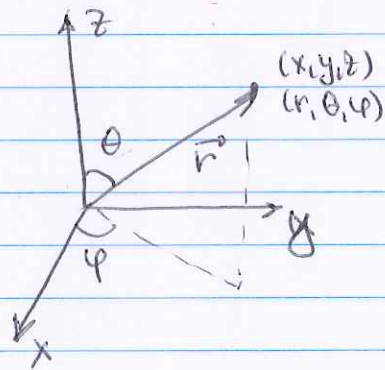 z
(x,y,z)
(r,θ,φ)
θ
r⃗
y
φ
x